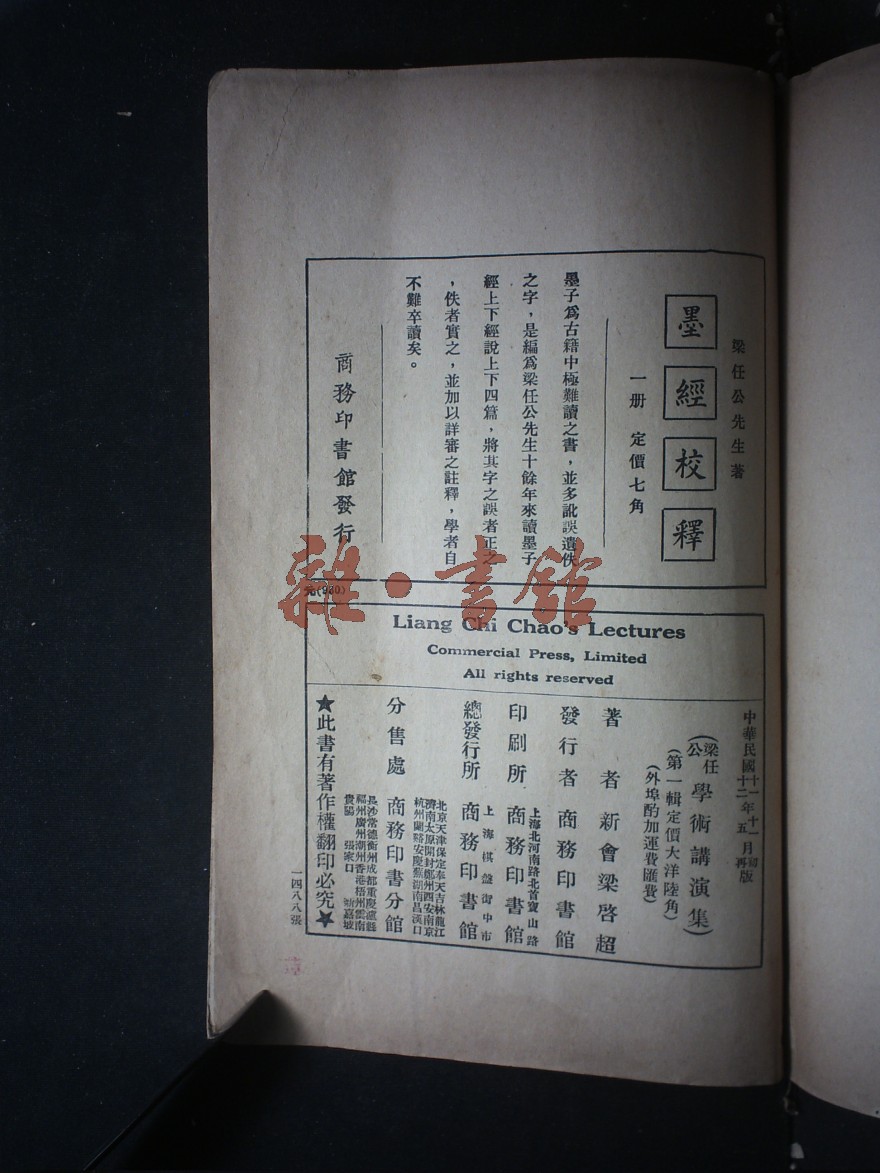 梁任公先生著
墨經校釋
一册 定價七角
墨子爲古籍中極難讀之書，並多訛誤遺佚
之字，是編爲梁任公先生十餘年來讀墨子
經上下經說上下四篇，將其字之誤者正之
，佚者實之，並加以詳審之註釋，學者自
不難卒讀矣。
商務印書館發行
元(930)
Liang Chi Chao's Lectures
Commercial Press, Limited
All rights reserved
中華民國十一年十一月初版
十二年五月再版
(梁任公學術講演集)
(第一輯定價大洋陸角)
(外埠酌加運費匯費)
著者 新會梁啓超
發行者 商務印書館
印刷所 上海北河南路北首寶山路 商務印書館
總發行所 上海棋盤街中市 商務印書館
分售處 商務印書分館
北京天津保定奉天吉林龍江
濟南太原開封鄭州西安南京
杭州蘭谿安慶蕪湖南昌漢口
長沙常德衡州成都重慶瀘縣
福州廣州潮州香港梧州雲南
貴陽 張家口 新嘉坡
★此書有著作權翻印必究★
一四八八張
雜·書館